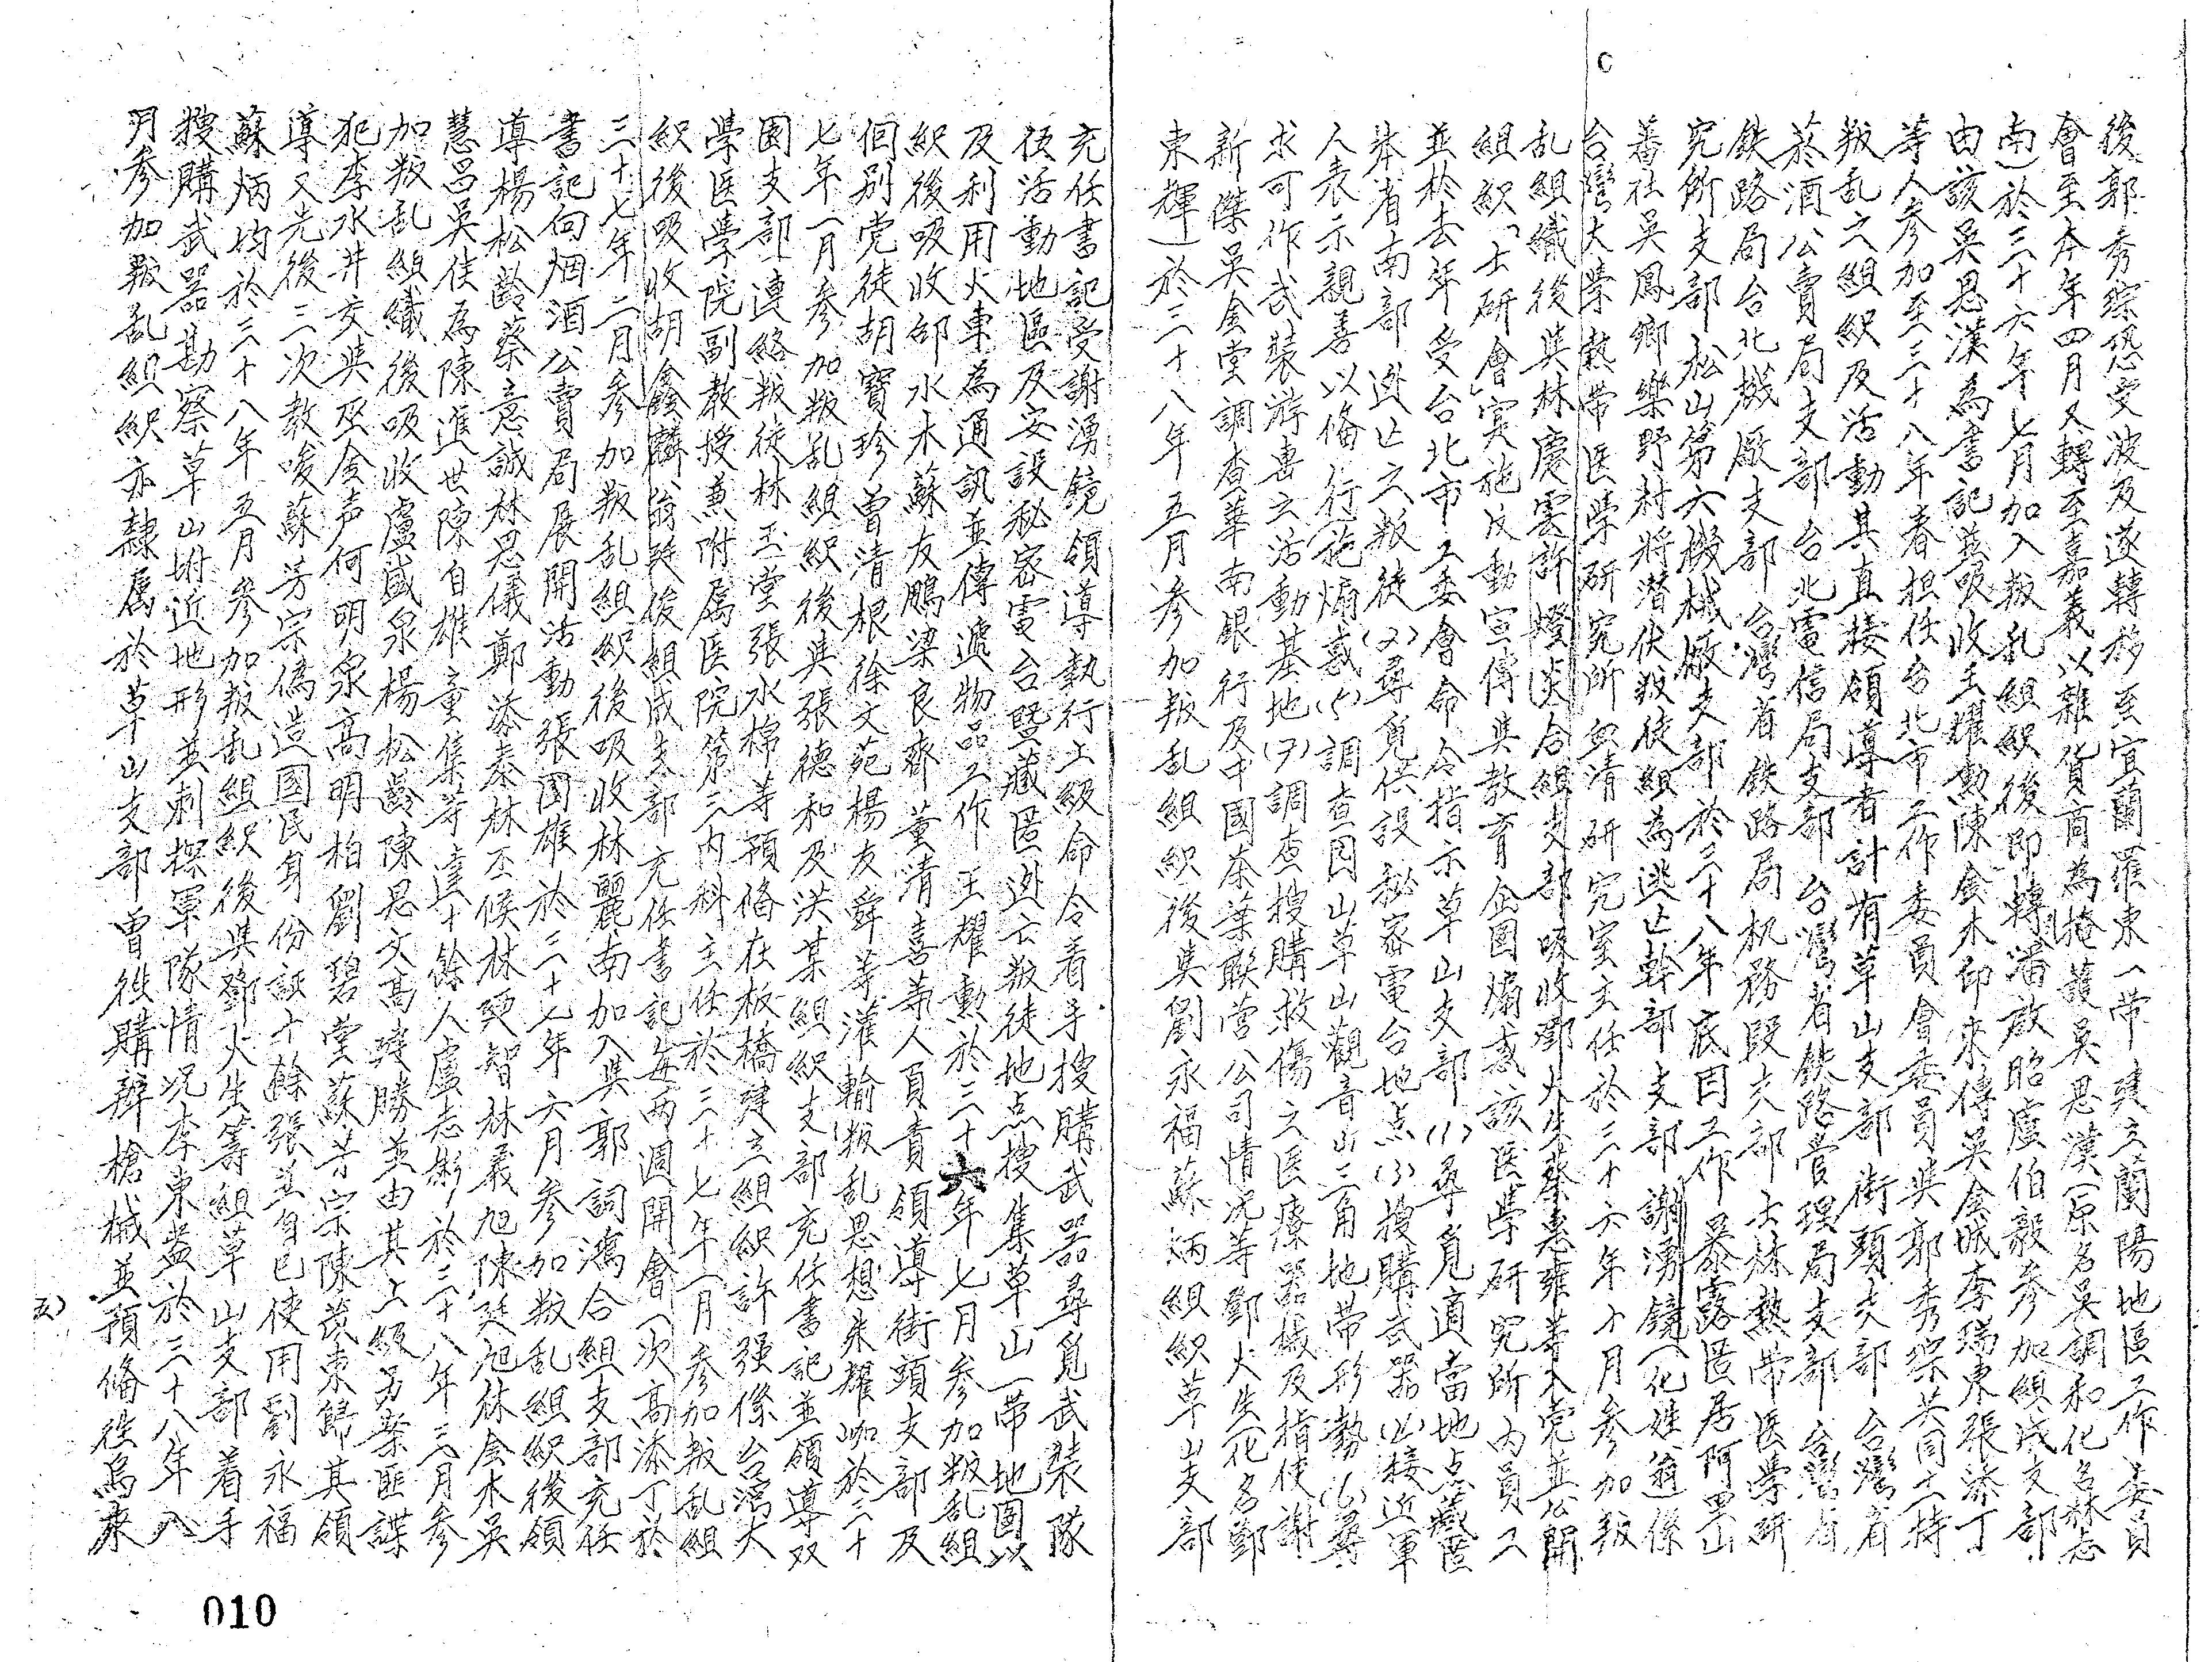 後郭秀琮恐受波及遂轉移至宜蘭羅東一帶建立蘭陽地區工作委員
會至本年四月又轉至嘉義以雜貨商為掩護吳思漢(原名吳調和化名林志
南)於三十六年七月加入叛乱組織後即轉潘啟昭盧伯毅參加組成支部
由該吳思漢為書記並吸收王耀勲陳金木邱來傳吳金城李瑞東張添丁
等人參加至三十八年春担任台北市工作委員會委員與郭秀琮共同主持
叛乱之組織及活動其直接領導者計有草山支部街頭支部台灣省
菸酒公賣局支部台北電信局支部台灣省鉄路管理局支部台灣省
鉄路局台北機廠支部台灣省鉄路局机務段支部士林熱帶医学研
究所支部松山第六機械廠支部於三十八年底因工作暴露匿居阿里山
蕃社吳鳳鄉樂野村將潜伏叛徒組為逃亡幹部支部謝湧鏡(化姓翁)係
台灣大學熱帶医学研究所血清研究室主任於三十六年十月參加叛
乱組織後與林慶雲許燈炎合組支部吸收鄧火生蔡惠雍等入党並公開
組織「士研會」実施反動宣傳與教育企圖煽惑該医学研究所內員工
並於去年受台北市工委會命令指示草山支部(1)尋覓適當地点藏匿
本省南部逃亡之叛徒(2)尋覓供設秘密電台地点(3)搜購武器(4)接近軍
人表示親善以俻行施煽惑(5)調查因山草山觀音山三角地帶形勢(6)尋
求可作武裝游击之活動基地(7)調查搜購救傷之医療器械及指使謝
新傑吳金堂調查華南銀行及中國茶葉联营公司情况等鄧火生(化名鄭
東輝)於三十八年五月參加叛乱組織後與劉永福蘇炳組織草山支部
充任書記受謝湧鏡領導執行上級命令着手搜購武器尋覓武裝隊
伍活動地區及安設秘密電台暨藏匿逃亡叛徒地点搜集草山一帶地圖以
及利用火車為通訊並傳遞物品工作王耀勲於三十六年七月參加叛乱組
織後吸收邰水木蘇友鵬梁良齊董清喜等人負責領導街頭支部及
個別党徒胡寶珍曾清根徐文苑楊友舜等灌輸叛乱思想朱耀咖於三十
七年一月參加叛乱組織後與張德和及洪某組織支部充任書記並領導双
園支部連絡叛徒林玉堂張水棉等預俻在板橋建立組織許强係台湾大
學医學院副教授兼附属医院第三內科主任於三十七年一月參加叛乱組
織後吸收胡鑫麟翁廷俊組成支部充任書記每两週開會一次高添丁於
三十七年二月參加叛乱組織後吸收林麗南加入與郭詞鴻合組支部充任
書記向烟酒公賣局展開活動張國雄於三十七年六月參加叛乱組織後領
導楊松齡蔡意誠林恩儀鄭添泰林丕候林奭智林義旭陳廷旭林金木吳
慧昌吳佳為陳進世陳自雄童集等達十餘人盧志彬於三十八年三月參
加叛乱組織後吸收盧盛泉楊松齡陳思文高建勝並由其上級另案匪諜
犯李水井交與巫金声何明泉高明柏劉碧堂蘇芳宗陳茂東歸其領
導又先後三次教唆蘇芳宗偽造國民身份証十餘張並自己使用劉永福
蘇炳均於三十八年五月參加叛乱組織後與鄧火生籌組草山支部着手
搜購武器勘察草山坿近地形並刺探軍隊情况李東益於三十八年八
月參加叛乱組織亦隸属於草山支部曾往購辦槍械並預俻往烏來
五)
010